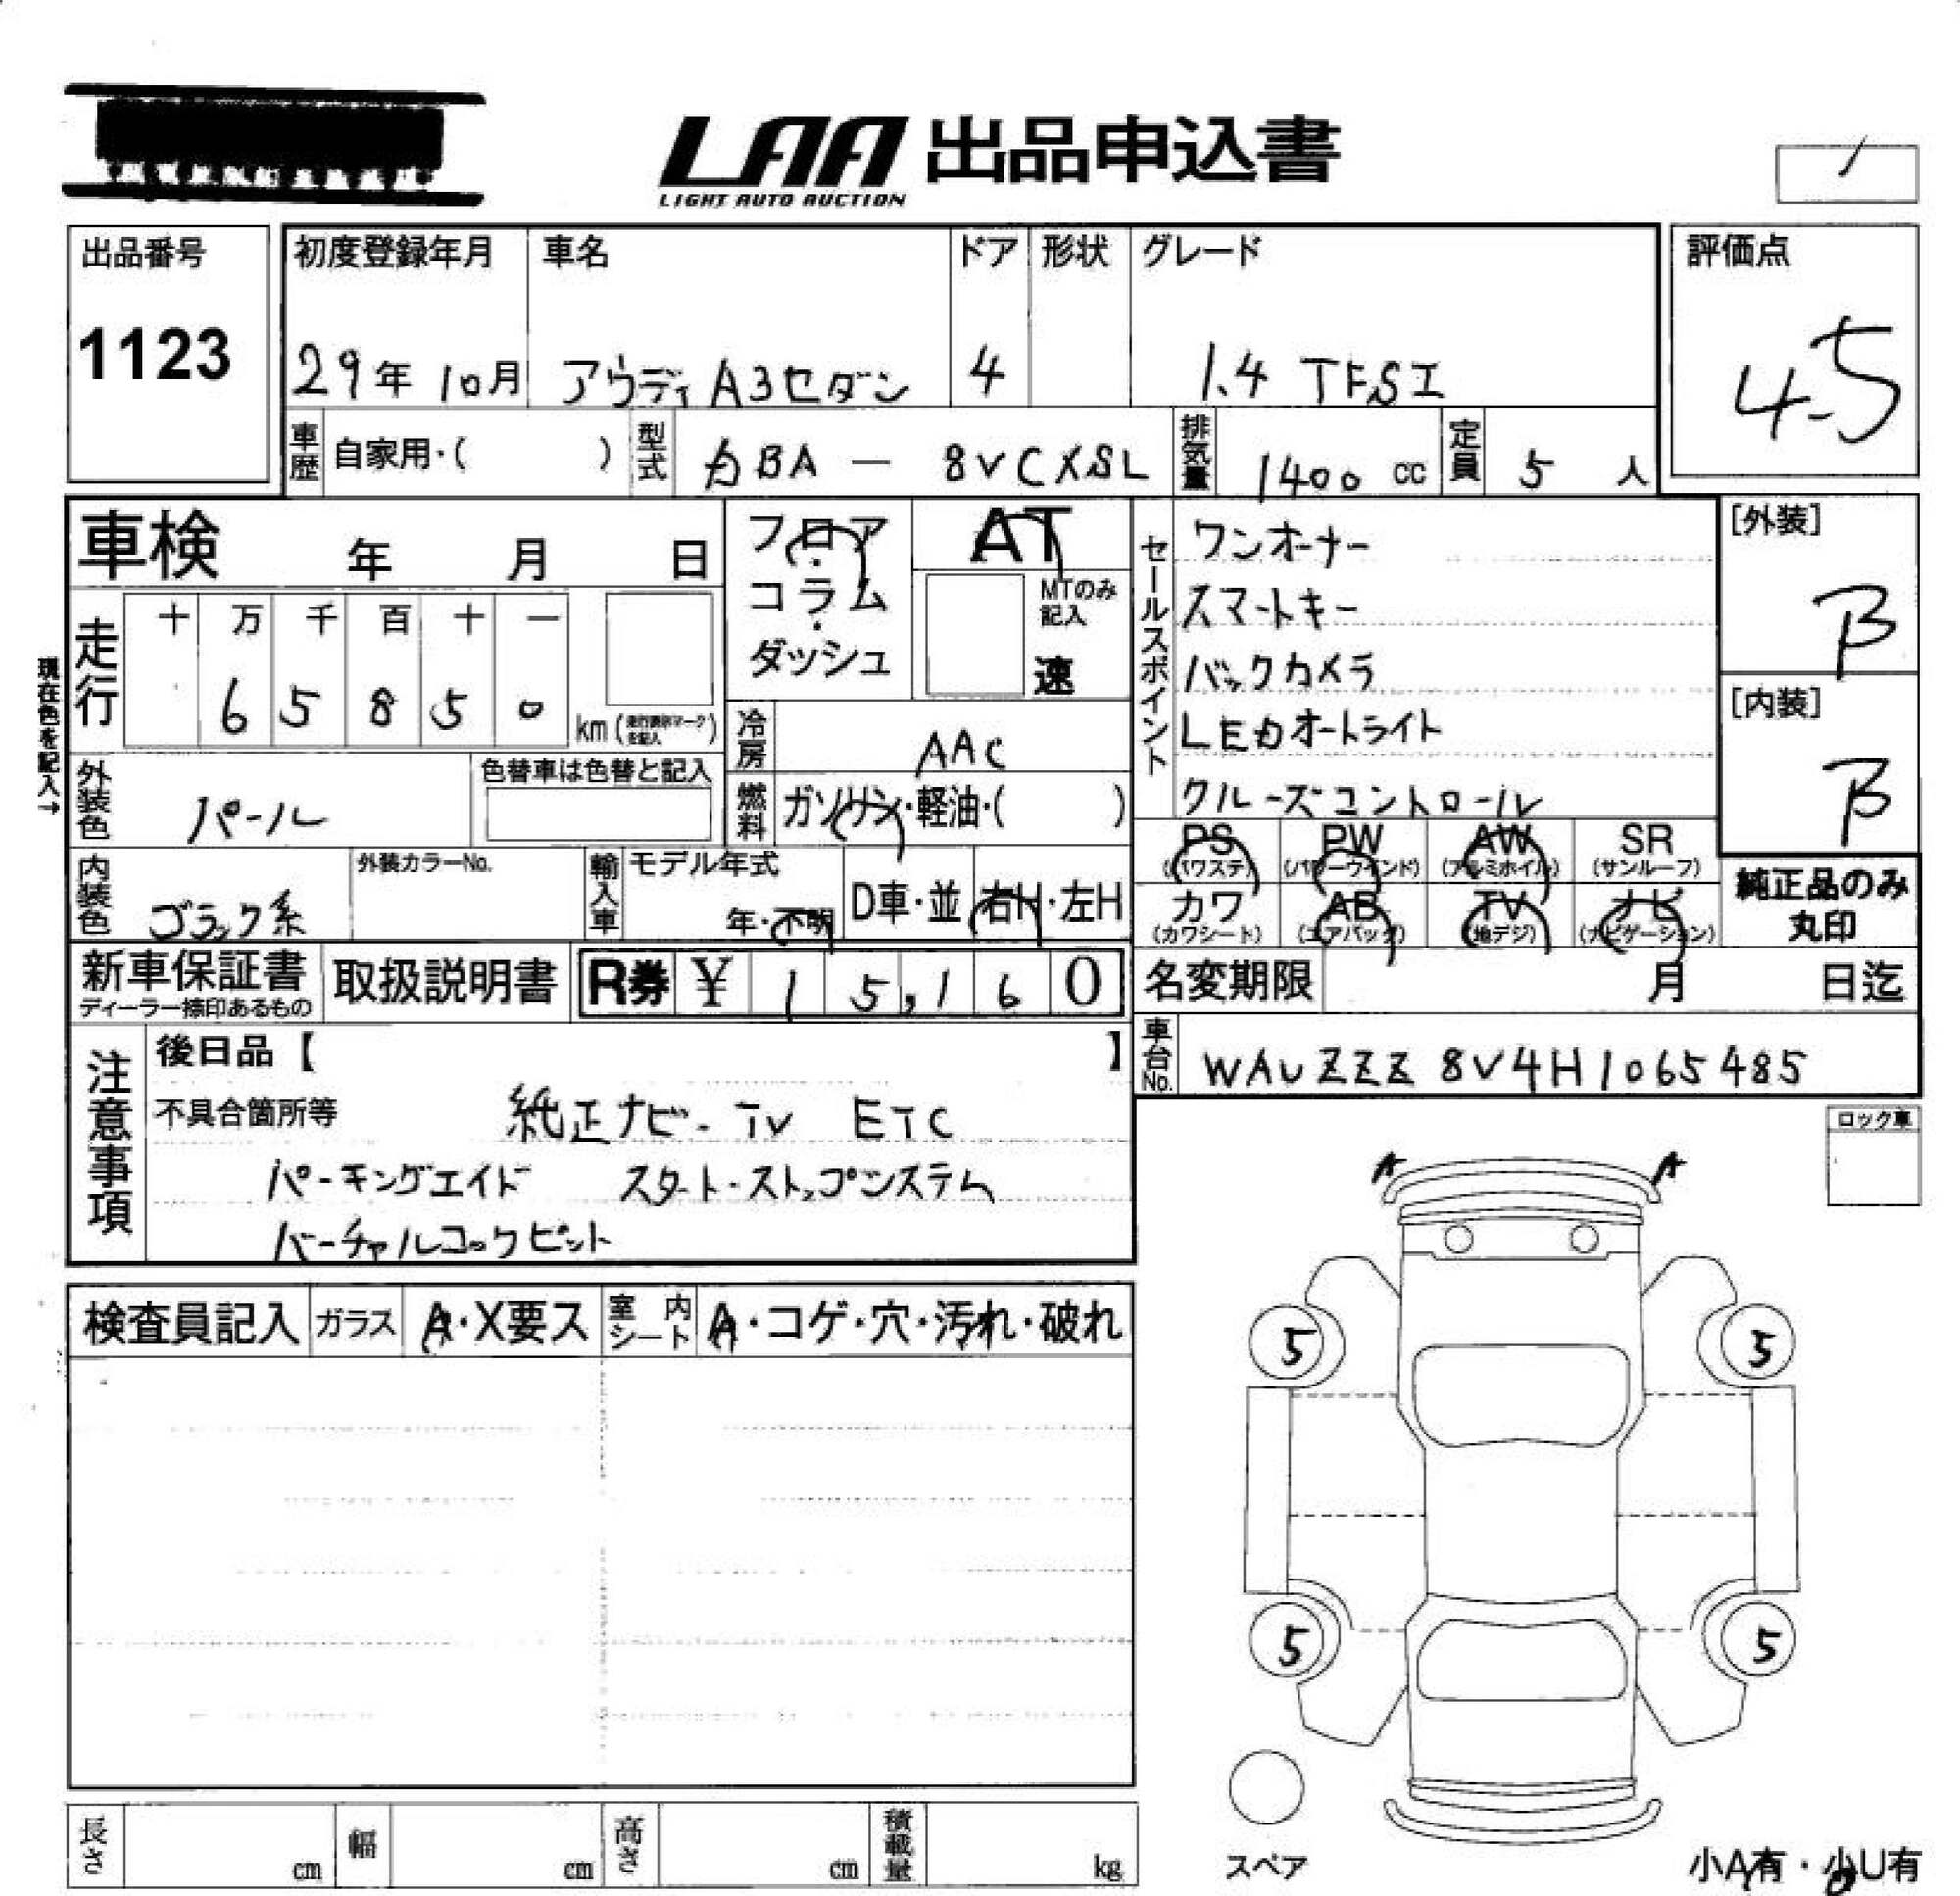 LAA 出品申込書
LIGHT AUTO AUCTION
出品番号
1123
初度登録年月 車名 ドア 形状 グレード
29年 10月 アウディ A3セダン 4 1.4 TFSI
評価点
4.5
車歴 自家用・( ) 型式 DBA - 8VCXSL 排気量 1400 cc 定員 5 人
車検 年 月 日
フロア・コラム・ダッシュ
AT
MTのみ記入
速
セールスポイント
ワンオーナー
スマートキー
バックカメラ
LEDオートライト
クルーズコントロール
[外装]
B
[内装]
B
現在色を記入→
走行 十 万 千 百 十 一
6 5 8 5 0 km (走行表示マークを記入)
冷房 AAC
外装色 パール 色替車は色替と記入
燃料 ガソリン・軽油・( )
PS (パワステ) PW (パワーウインド) AW (アルミホイル) SR (サンルーフ)
カワ (カワシート) AB (エアバッグ) TV (地デジ) ナビ (ナビゲーション)
純正品のみ丸印
内装色 ブラック系 外装カラーNo. 輸入車 モデル年式 年・不明 D車・並 右H・左H
新車保証書 ディーラー捺印あるもの 取扱説明書 R券 ¥ 15,160
名変期限 月 日迄
車台No. WAUZZZ8V4H1065485
注意事項
後日品【 】
不具合箇所等 純正ナビ・TV ETC
パーキングエイド スタート・ストップシステム
バーチャルコックピット
ロック車
A A
検査員記入 ガラス A・X要ス 室内シート A・コゲ・穴・汚れ・破れ
5 5
5 5
長さ cm 幅 cm 高さ cm 積載量 kg
スペア
小A有・小U有